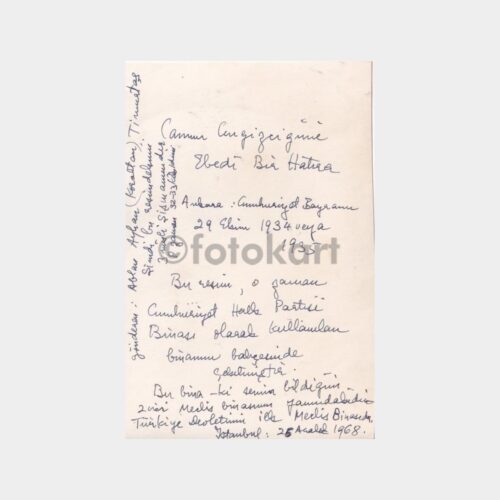 Canım Cengizciğime
Ebedî Bir Hatıra
Ankara : Cumhuriyet Bayramı
29 Ekim 1934 veya
1935
Bu resim, o zaman
Cumhuriyet Halk Partisi
Binası olarak kullanılan
binanın bahçesinde
çekilmiştir.
Bu bina - ki senin bildiğin
2nci Meclis binasının yanındakidir
Türkiye Devletinin ilk Meclis Binasıdır.
İstanbul : 25 Aralık 1968.
gönderen : Ablan Ayhan Timurtaş
Şimdi bu resimdekinin
©fotokart